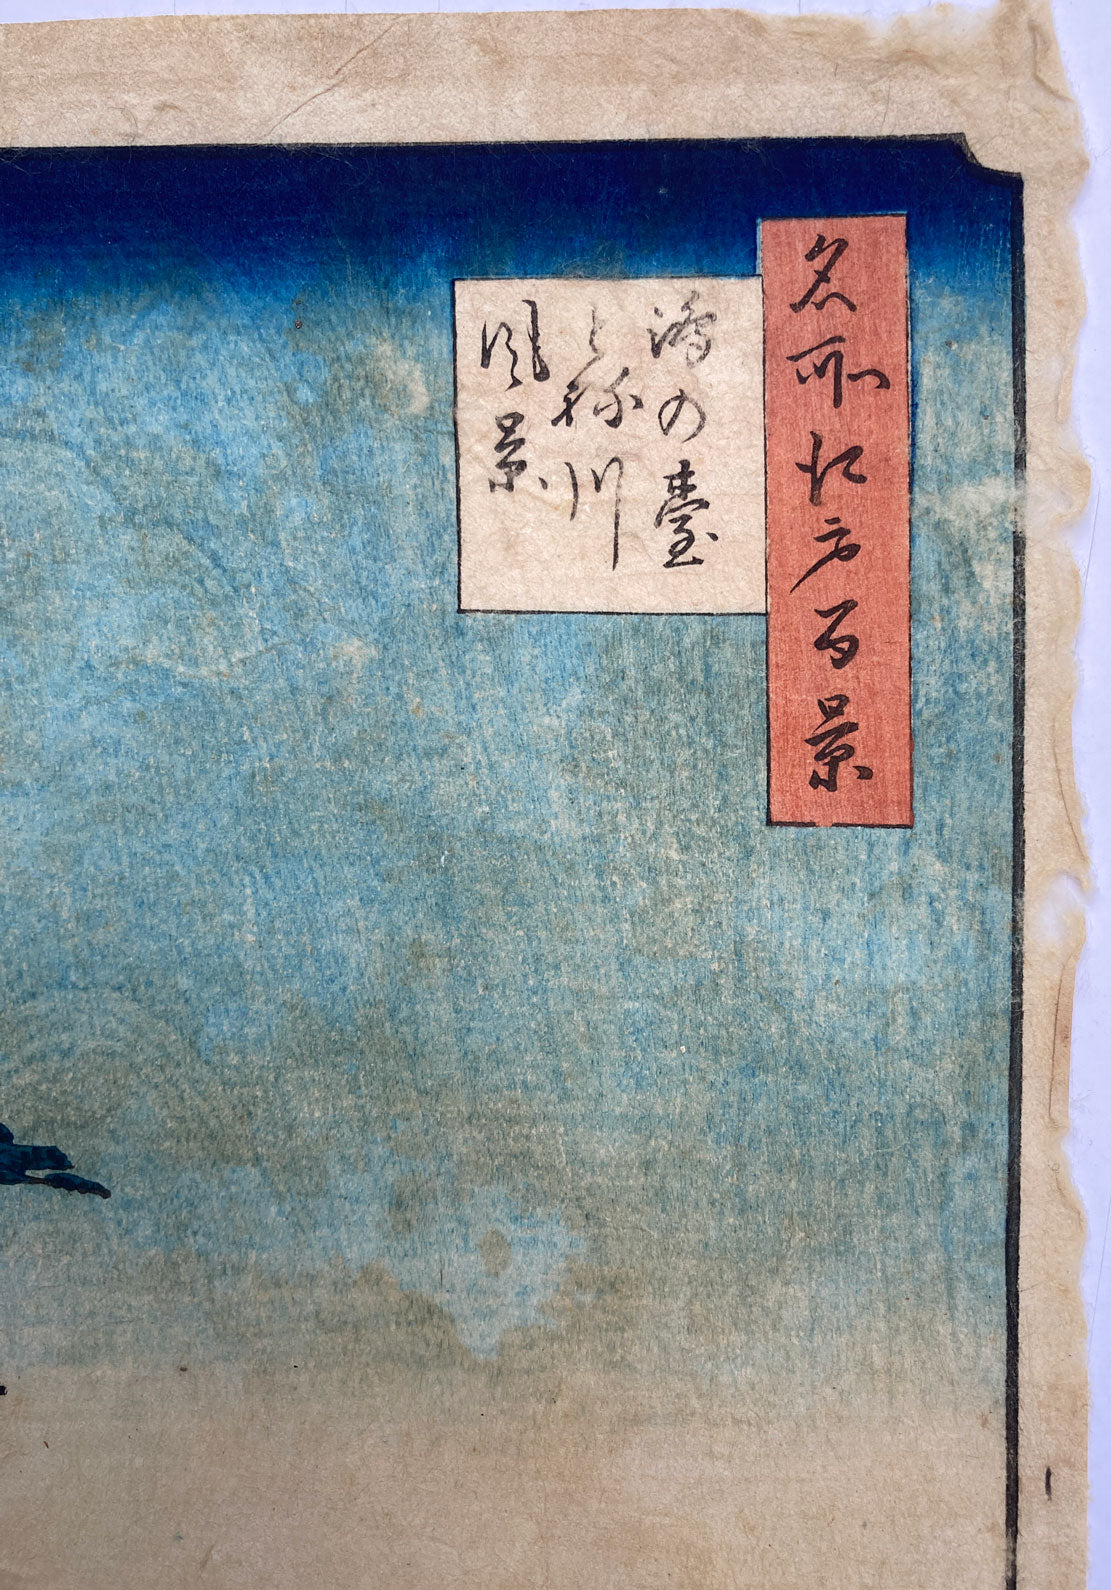 名所江戸百景
鴻の臺
とね川
風景